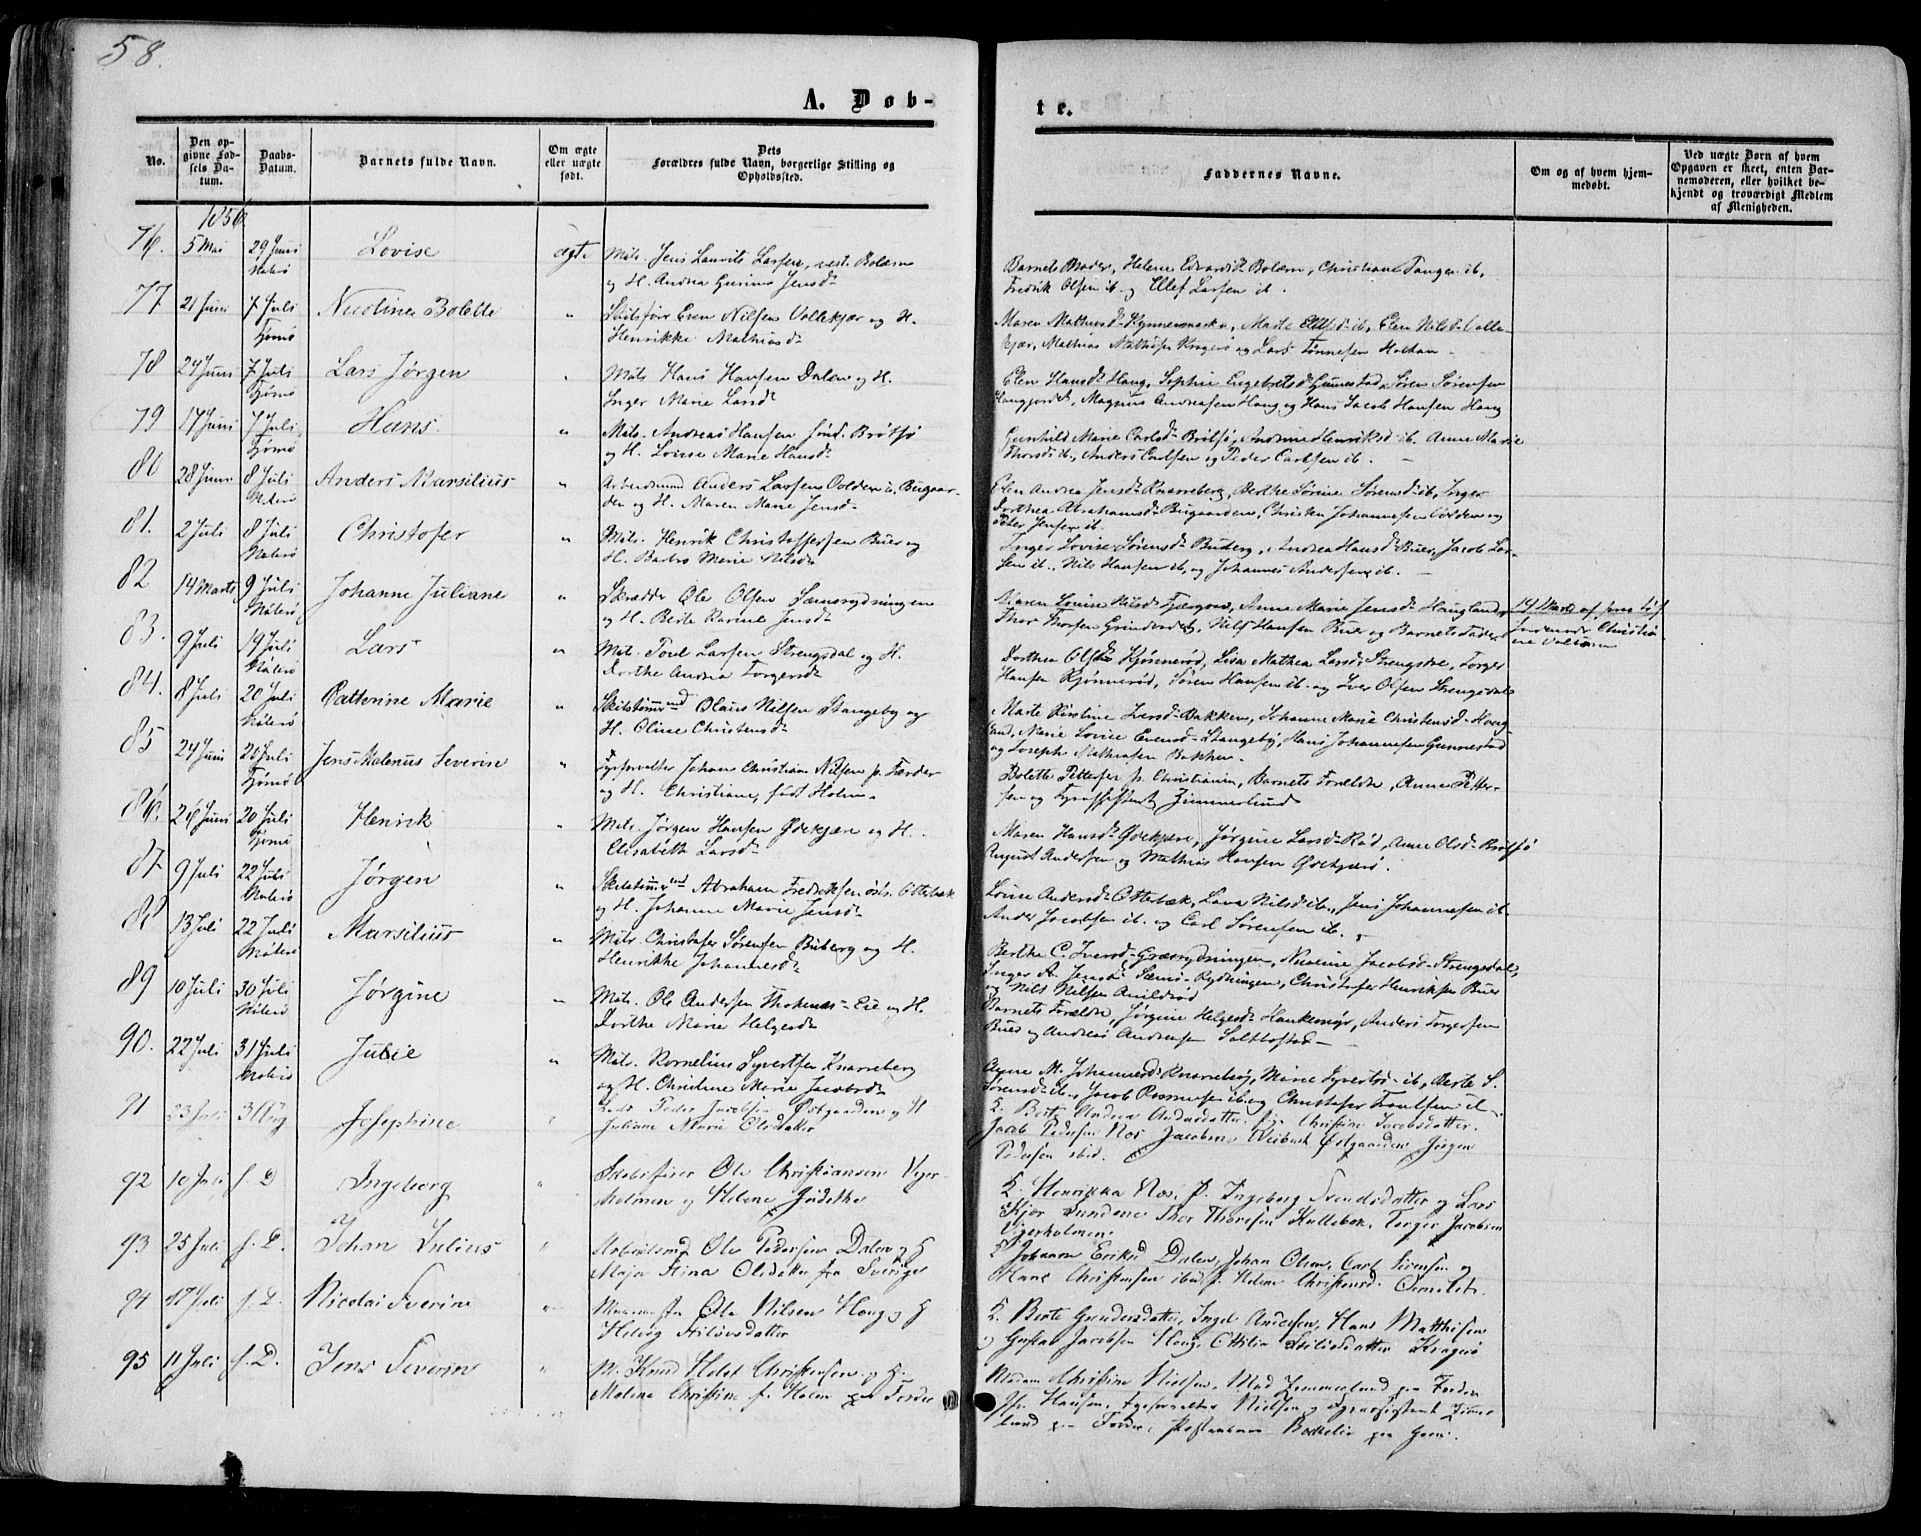 58.
A. Døb-
te.
No.
Den op-
givne Fød-
sels Da-
tum.
Daabs-
Datum.
Barnets fulde Navn.
Om ægte
eller uægte
født.
Dets
Forældres fulde Navn, borgerlige Stilling og
Opholdssted.
Faddernes Navne.
Om og af hvem hjem-
medøbt.
Ved uægte Børn af hvem
Opgaven er skeet, enten Bar-
nemoderen, eller hvilket be-
kjendt og troværdigt Medlem
af Menigheden.
1856.
76. 5 Mai 29 Juni Nøterø Lovise ægte Mats. Jens Lauritz Larsen, vest. Bolærn
og H. Andrea Gurine Jensd.
Barnets Moder, Helene Edvardsd. Bolærn, Christian Tangen ib,
Fredrik Olsen ib. og Ellef Larsen ib.
77 21 Juni 7 Juli Tjømø Nicoline Bolette " Skibsfører Even Nilsen Vollekjær og H.
Henrikke Mathiasd.
Maren Mathiasd. Kynnesmarken, Marte Ellefsd. ib, Elen Nilsd. Volle-
kjær, Mathias Mathisen Kragerø og Lars Tønnesen Holtan
78 24 Juni 7 Juli Tjømø Lars Jørgen " Mats Hans Hansen Dalen og H.
Inger Marie Larsd.
Elen Hansd. Haug, Sophie Engebretsd. Gunnestad, Søren Sørensen
Haugjordet, Magnus Andreasen Haug og Hans Jacob Hansen Haug
79 17 Juni 7 Juli Tjømø Hans. " Mats. Andreas Hansen sønd. Brøtsø
og H. Lovise Marie Hansd.
Gunhild Marie Carlsd. Brøtsø, Andrine Henriksd. ib. Anne Marie
Thorsd. ib, Anders Carlsen og Peder Carlsen ib.
80 28 Juni 8 Juli Nøterø Anders Marsilius " Arbeidsmand Anders Larsen Oolden u. Bugaar-
den og H. Maren Marie Jensd.
Elen Andrea Jensd. Knarreberg, Berthe Sørine Sørensd. ib, Inger
Dorthea Abrahamsd. Bugaarden, Christen Johannesen Oolden og
Peter Jensen ib.
81. 2 Juli 8 Juli Nøterø Christofer " Mats. Henrik Christoffersen Buer og
H. Barbro Marie Nilsd.
Inger Lovise Sørensd. Buberg, Andrea Hansd. Buer, Jacob Lar-
sen ib, Nils Hansen ib, og Johannes Andersen ib.
82 14 Marts 9 Juli Nøterø Johanne Juliane " Skrædder Ole Olsen Sæmsrydningen
og H. Berte Karine Jensd.
Maren Lovise Nilsd. Fjærgen, Anne Marie Jensd. Haugland,
Thor Thorsen Grindered, Nils Hansen Buer og Barnets Fader
14 Marts af
83. 9 Juli 19 Juli Nøterø Lars " Mat. Poul Larsen Strengsdal og H.
Dorthe Andrea Torgersd.
Dorthea Olsd. Kjønnerød, Lisa Mathea Larsd. Strengsdal, Torger
Hansen Kjønnerød, Søren Hansen ib. og Iver Olsen Strengsdal
84. 8 Juli 20 Juli Nøterø Cathrine Marie " Skibstømmd. Olaus Nilsen Stangeby og
H. Oline Christensd.
Marte Kirstine Larsd. Bakken, Johanne Marie Christensd. Houg-
land, Marie Lovise Evensd. Stangeby, Hans Johannesen Gunnestad
og Joseph Mathiasen Bakken.
85 24 Juni 20 Juli Tjømø Jens Malenus Severin " Fyrforvalter Johan Christian Nilsen p. Færder
og H. Christiane, født Holm.
Bolette Pettersen p. Christiania, Barnets Forældre, Anne Petter-
sen og Fyrassistent Zimmerlund
86. 26 Juni 20 Juli Tjømø Henrik " Mats. Jørgen Hansen Ødekjær og H.
Elisabeth Larsd.
Maren Hansd. Ødekjær, Jørgine Larsd. Rød, Anne Olsd. Brøtsø
August Andersen og Mathias Hansen Ødekjær.
87. 9 Juli 22 Juli Nøterø Jørgen " Skibstømmd. Abraham Fredriksen østr. Ottebæk
og H. Johanne Marie Jensd.
Lovise Andersd. Ottebæk, Lava Nilsd. ib., Jens Johannesen ib.
Anders Jacobsen ib. og Carl Sørensen ib.
88 13 Juli 22 Juli Nøterø Marsilius " Mats. Christofer Sørensen Buberg og H.
Henrikke Johannesd.
Berthe C. Iversd. Græsrydningen, Nicoline Jacobsd. Strengsdal,
Inger A. Jensd. Sæms-Rydningen, Christofer Henriksen Buer
og Nils Nilsen
89 10 Juli 30 Juli Nøterø Jørgine " Mats. Ole Andersen Thokenæs-Eie og H.
Dorthe Marie Helgesd.
Barnets Forældre, Jørgine Helgesd. Haukemyr, Anders Torgersen
Buer og Andreas Andersen Saltbostad
90. 22 Juli 31 Juli Nøterø Julie " Mats. Kornelius Syvertsen Knarreberg
og H. Christine Marie Jacobsd.
Anne M. Johannesd. Knarreberg, Marie Syvertsd. ib, Berte S.
Sørensd. ib., Jacob Rasmussen ib. og Christofer Poulsen ib.
91 23 Juli 3 Aug Josephine " Lods Peder Jacobsen Østgaarden og H
Juliane Marie Olsdatter
K. Berte Andrea Andersdatter, Pige Christine Jacobsdatter.
Jacob Pedersen Næs, Jacobine Østgaarden, Jørgen
Pedersen ibid.
92 10 Juli s. D Ingeborg " Skibsfører Ole Christiansen Veger-
holmen og Helene
K. Henrikka Næs, p. Ingeborg Svendsdatter og Lars
Kjær Sundene Thor Thoresen Hullebak. Torger Jacobsen
Vegerholmen.
93 25 Juli s. D. Johan Julius " Arbeidsmd Ole Pedersen Dalen og H
Maja Stina Olsdatter fra Sverige
K Johanne Eriksd. Dalen, Johan Olsen, Carl Sørensen og
Hans Christensen ibid p. Helene Christensd.
94 17 Juli s. D. Nicolai Severin " Ole Nilsen Haug og H
Helvig Stilovsdatter
K. Berte Gundersdatter, Inger Andersen, Hans Matthisen
og Gustav Jacobsen Haug, Ottilia Kragerø
95 11 Juli s. D. Jens Severin " M. Knud Holst Christensen og H.
Malene Christine f. Holm paa Færder
Madam Christine Nielsen, Mad Zimmerlund paa Færder
Hansen, Fyrforvalter Nielsen og Fyrassistent Zimmer-
lund paa Færder,